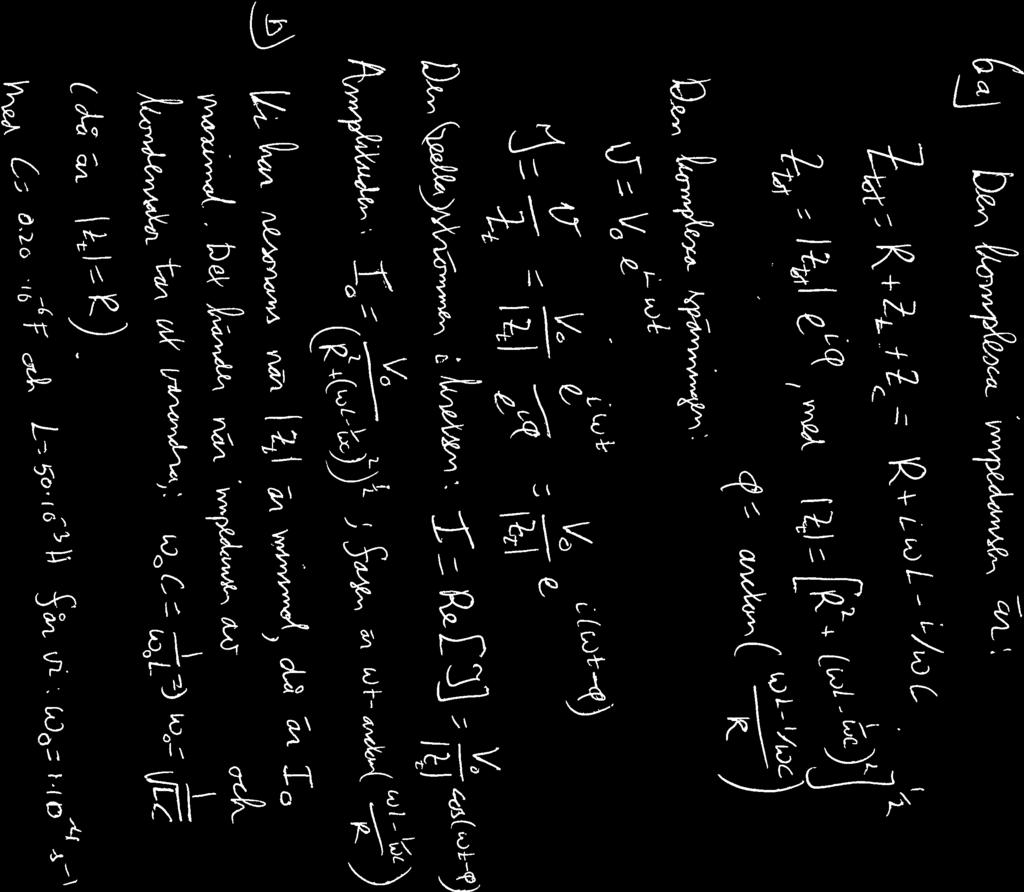 6a) Den komplexa impedansen är:
Z_tot = R + Z_L + Z_C = R + iωL - i/ωC.
Z_tot = |Z_tot| e^{iφ}, med |Z_t| = [R² + (ωL - 1/ωC)²]^{1/2}
φ = arctan((ωL - 1/ωC)/R)
Den komplexa spänningen:
V = V₀ e^{iωt}
I = V/Z_t = V₀/|Z_t| e^{iωt}/e^{iφ} = V₀/|Z_t| e^{i(ωt-φ)}
Den (reella) strömmen i kretsen: I = Re[I] = V₀/|Z_t| cos(ωt-φ)
Amplituden: I₀ = V₀/(R² + (ωL - 1/ωC)²)^{1/2}; fasen är ωt - arctan((ωL - 1/ωC)/R)
b) Vi har resonans när |Z_t| är minimal, då är I₀
maximal. Det händer när impedansen av och
kondensator tar ut varandra: ω₀C = 1/ω₀L ⇒ ω₀ = 1/√LC
(då är |Z_t| = R).
Med C = 0.20·10⁻⁶F och L = 50·10⁻³H får vi: ω₀ = 1·10⁻⁴ s⁻¹